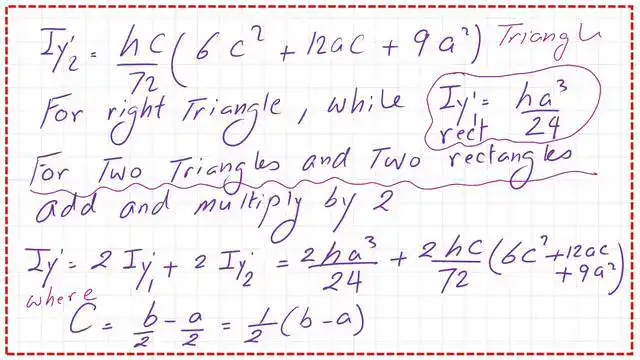 Iy'₂ = hc/72 (6c² + 12ac + 9a²) Triangle
For right Triangle, while Iy'₁ = ha³/24
rect
For Two Triangles and Two rectangles
add and multiply by 2
Iy' = 2 Iy'₁ + 2 Iy'₂ = 2ha³/24 + 2hc/72 (6c² + 12ac + 9a²)
where
C = b/2 - a/2 = 1/2 (b-a)